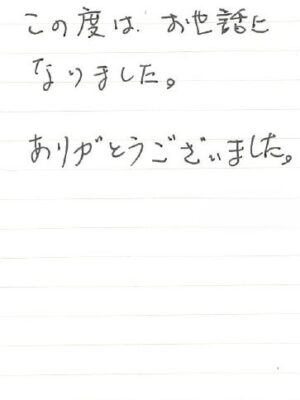 この度は、お世話に
なりました。
ありがとうございました。